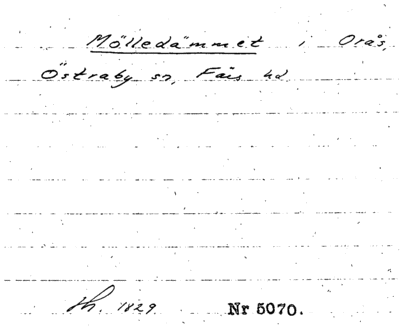 Mölledämmet i Orås,
Östraby sn, Färs hd
Th. 1829 Nr 5070.